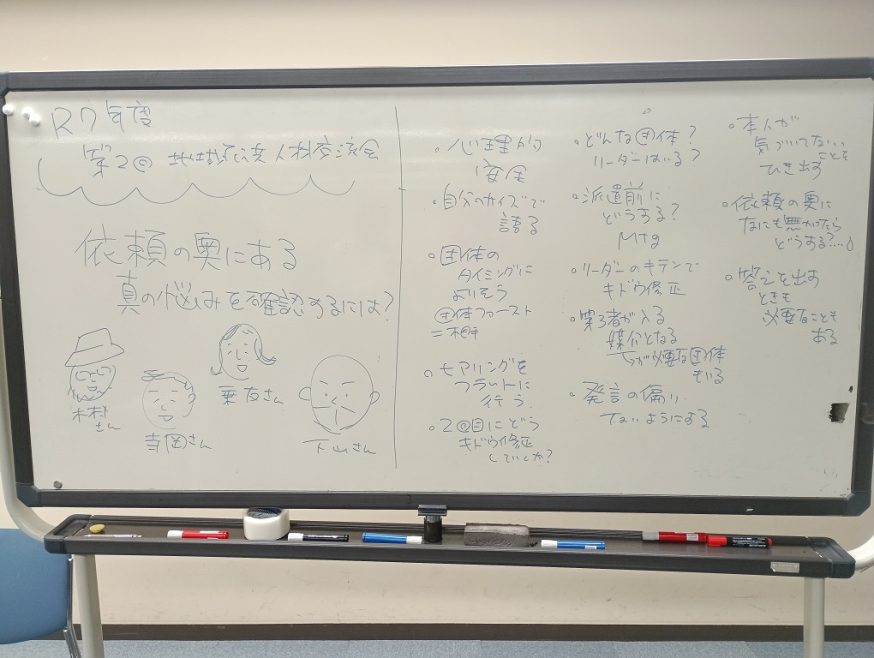 R7年度
第2回 地域づくり人材交流会
依頼の奥にある
真の悩みを確認するには?
木村
さん
寺岡さん
乗友さん
下山さん
・心理的
安全
・自分のサイズで
語る
・団体の
タイミングに
よりそう
団体ファースト
=相手
・ヒアリングを
フラットに
行う
・2回目にどう
キドウ修正
していくか?
・どんな団体?
リーダーはいる?
・派遣前に
どうする?
Mtg
・リーダーのキテンで
キドウ修正
・第3者が入る
媒介となる
が必要な団体
もいる
・発言の偏り
ないようにする
・本人が
気づいてない
ことを
ひき出す
・依頼の奥に
なにも無かったら
どうする?
・答えを出す
ときも
必要なことも
ある